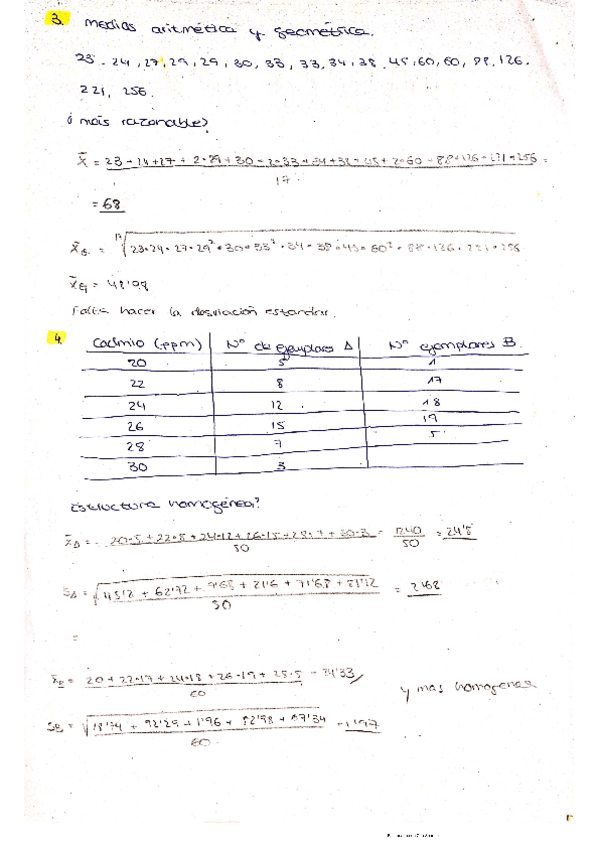 3. Medias aritmética y geométrica.
23, 24, 27, 29, 29, 30, 33, 33, 34, 38, 45, 60, 60, 88, 126,
221, 256.
¿ más razonable?
x̄ = 23+24+27+2·29+30+2·33+34+38+45+2·60+88+126+221+256 =
17
= 68
x̄G = 17√23·24·27·29²·30·33²·34·38·45·60²·88·126·221·256
x̄G = 48'98
Falta hacer la desviación estandar.
4. Cadmio (ppm) Nº de ejemplares A Nº ejemplares B.
20 5 1
22 8 17
24 12 18
26 15 19
28 7 5
30 3
Estructura homogénea?
x̄A = 20·5+22·8+24·12+26·15+28·7+30·3 = 1240 = 24'8
50 50
SA = √45'12 + 62'72 + 7'68 + 21'6 + 71'68 + 81'12 = 2'68
50
=
x̄B = 20+22·17+24·18+26·19+28·5 = 24'33
60
y mas homogenea
SB = √18'74 + 92'29 + 1'96 + 52'98 + 67'34 = 1'97
60